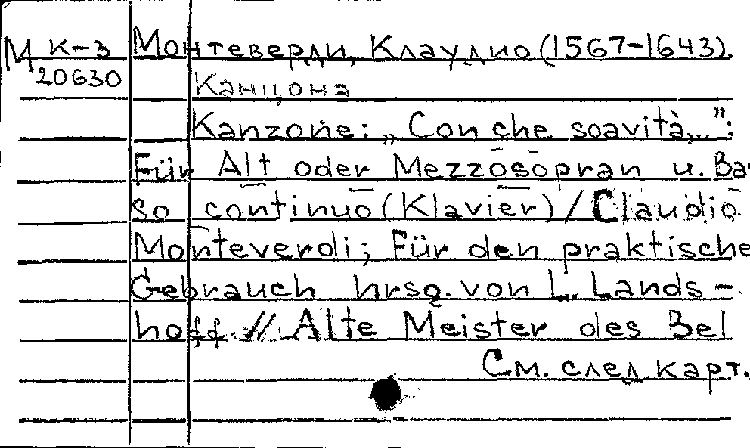 М К-3 Монтеверди, Клаудио (1567-1643).
20630 Канцона
Kanzone: „Con che soavità...":
Für Alt oder Mezzosopran u. Bas
so continuo (Klavier) / Claudio
Monteverdi; Für den praktische
Gebrauch hrsg. von L. Lands-
hoff // Alte Meister des Bel
См. след карт.